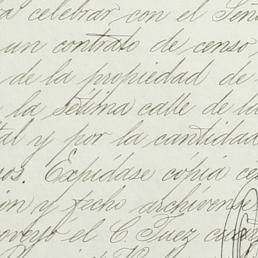 a celebrar con el Seño
un contrato de censo
de la propiedad de
la sétima calle de la
tal y por la cantidad
sos. Expídase cópia ce
ion y fecho archívense
oveyó el C. Juez cuar